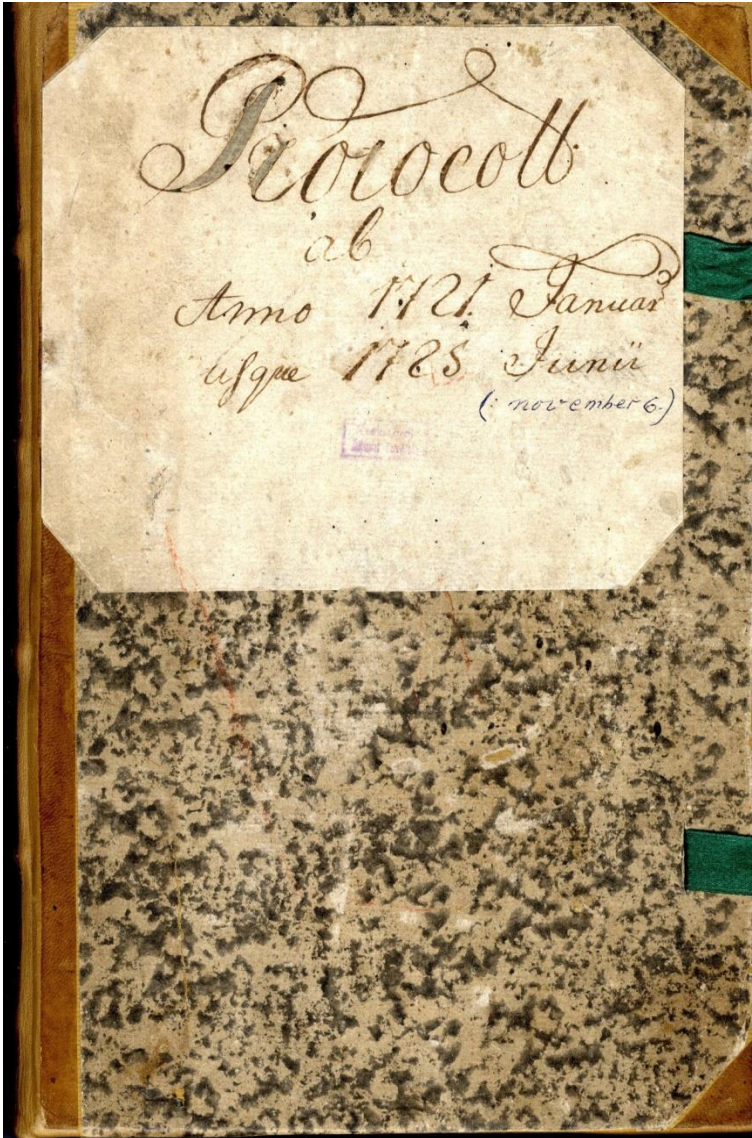 Protocoll
ab
Anno 1721. Januar
usque 1725 Junii
(: november 6.)